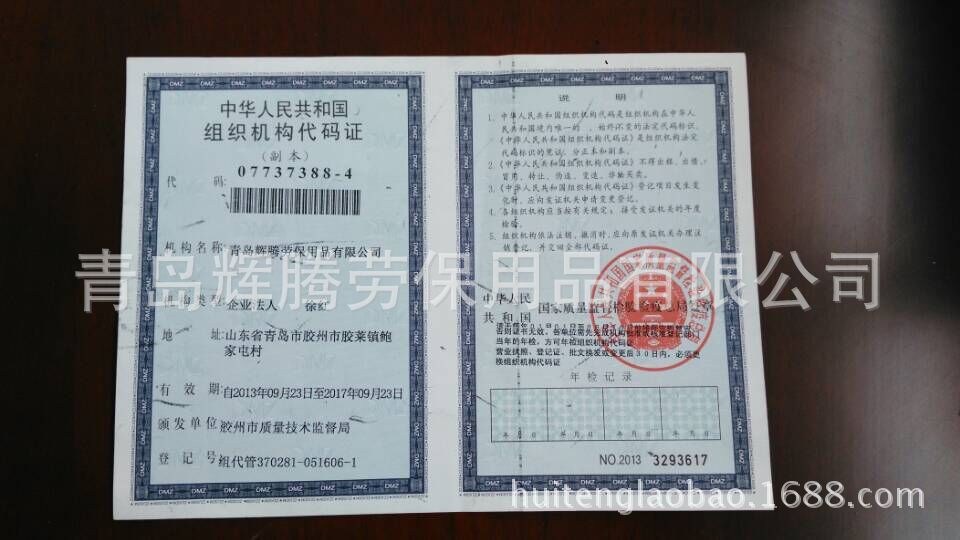 中华人民共和国
组织机构代码证
(副本)
代 码: 07737388-4
机构名称: 青岛辉腾劳保用品有限公司
机构类型: 企业法人 徐红
地 址: 山东省青岛市胶州市胶莱镇鲍
家屯村
有 效 期: 自2013年09月23日至2017年09月23日
颁发单位: 胶州市质量技术监督局
登 记 号: 组代管370281-051606-1
说 明
1. 中华人民共和国组织机构代码是组织机构在中华人
民共和国境内唯一的、始终不变的法定代码标识,
《中华人民共和国组织机构代码证》是组织机构法定
代码标识的凭证,分正本和副本。
2. 《中华人民共和国组织机构代码证》不得出租、出借、
冒用、转让、伪造、变造、非法买卖。
3. 《中华人民共和国组织机构代码证》登记项目发生变
化时,应向发证机关申请变更登记。
4. 各组织机构应当按有关规定,接受发证机关的年度
检验。
5. 组织机构依法注销、撤消时,应向原发证机关办理注
销登记,并交回全部代码证。
中华人民
共和国
国家质量监督检验检疫总局
当年的年检,方可年检组织机构代码证
营业执照、登记证、批文换发或变更后30日内,必须更
换组织机构代码证
年检记录
年 月 日 年 月 日 年 月 日 年 月 日
NO.2013 3293617
青岛辉腾劳保用品有限公司
huitenglaobao.1688.com